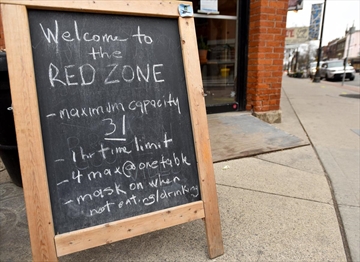 Welcome to
the
RED ZONE
- maximum capacity
31
- 1hr time limit
- 4 max @ one table
- mask on when
not eating/drinking